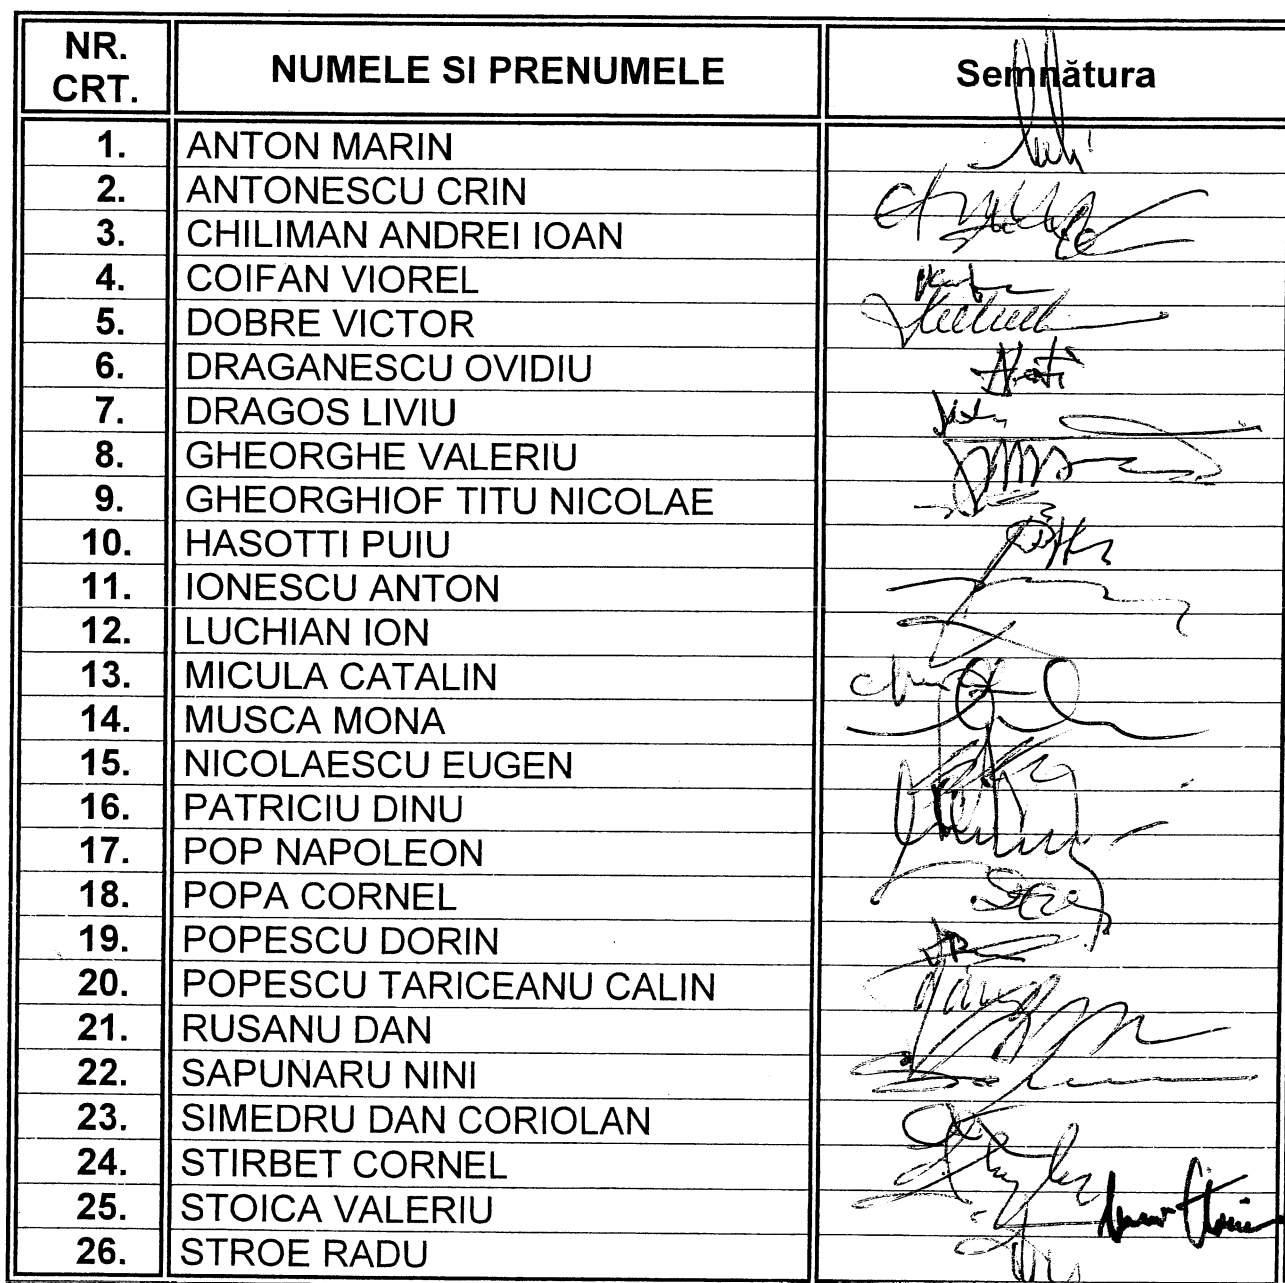 NR. CRT. NUMELE SI PRENUMELE Semnătura
1. ANTON MARIN
2. ANTONESCU CRIN
3. CHILIMAN ANDREI IOAN
4. COIFAN VIOREL
5. DOBRE VICTOR
6. DRAGANESCU OVIDIU
7. DRAGOS LIVIU
8. GHEORGHE VALERIU
9. GHEORGHIOF TITU NICOLAE
10. HASOTTI PUIU
11. IONESCU ANTON
12. LUCHIAN ION
13. MICULA CATALIN
14. MUSCA MONA
15. NICOLAESCU EUGEN
16. PATRICIU DINU
17. POP NAPOLEON
18. POPA CORNEL
19. POPESCU DORIN
20. POPESCU TARICEANU CALIN
21. RUSANU DAN
22. SAPUNARU NINI
23. SIMEDRU DAN CORIOLAN
24. STIRBET CORNEL
25. STOICA VALERIU
26. STROE RADU